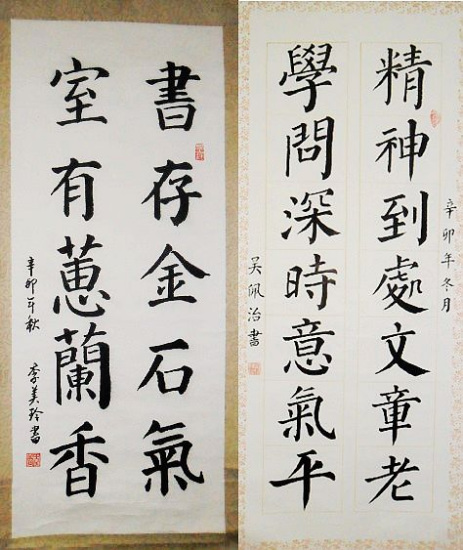 書存金石氣
室有蕙蘭香
辛卯年秋 李美玲書
辛卯年冬月
精神到處文章老
學問深時意氣平
吳佩治書